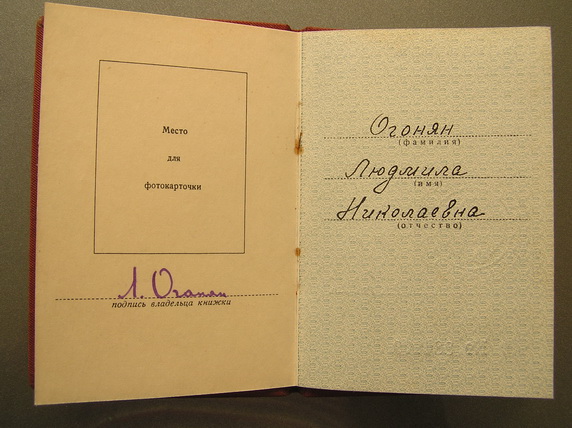 Место
для
фотокарточки
Л. Оганян
подпись владельца книжки
Огонян
(фамилия)
Людмила
(имя)
Николаевна
(отчество)